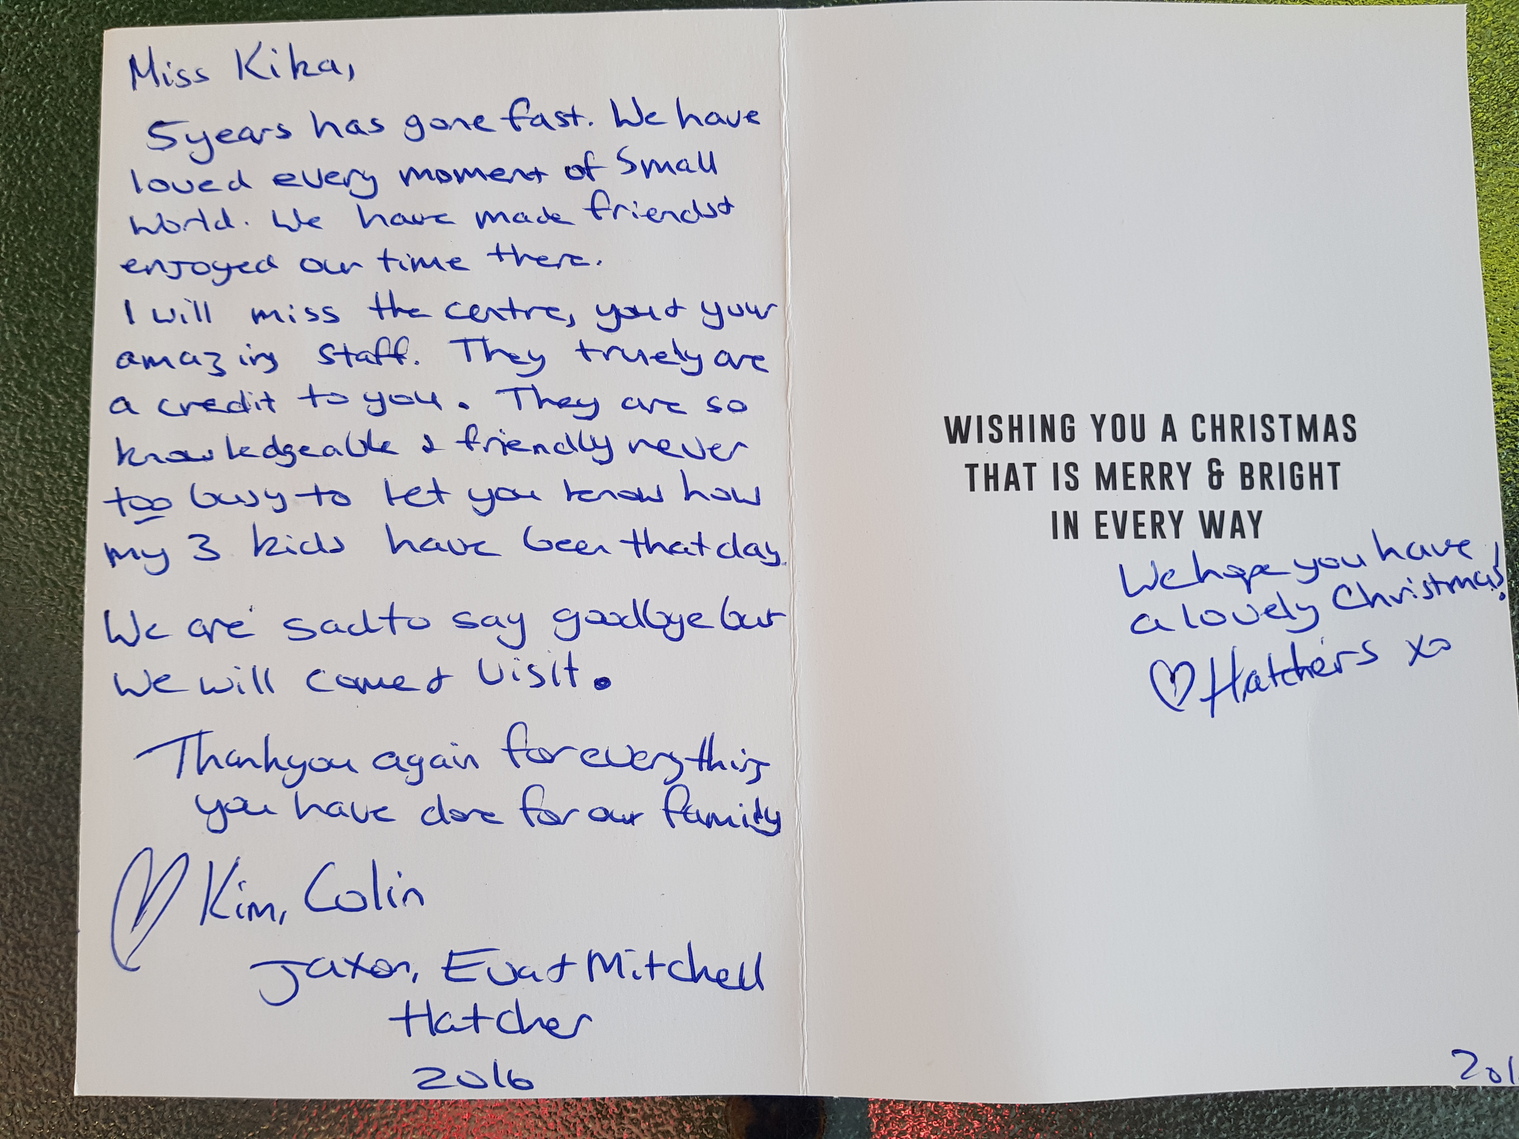 Miss Kika,
5years has gone fast. We have
loved every moment of Small
World. We have made friends +
enjoyed our time there.
I will miss the centre, you + your
amazing staff. They truely are
a credit to you. They are so
knowledgeable & friendly never
too busy to let you know how
my 3 kids have been that day.
We are sad to say goodbye but
we will come + visit.
Thankyou again for everything
you have done for our family
Kim, Colin
Jaxon, Eva + Mitchell
Hatcher
2016
WISHING YOU A CHRISTMAS
THAT IS MERRY & BRIGHT
IN EVERY WAY
We hope you have
a lovely Christmas!
Hatchers xo
201